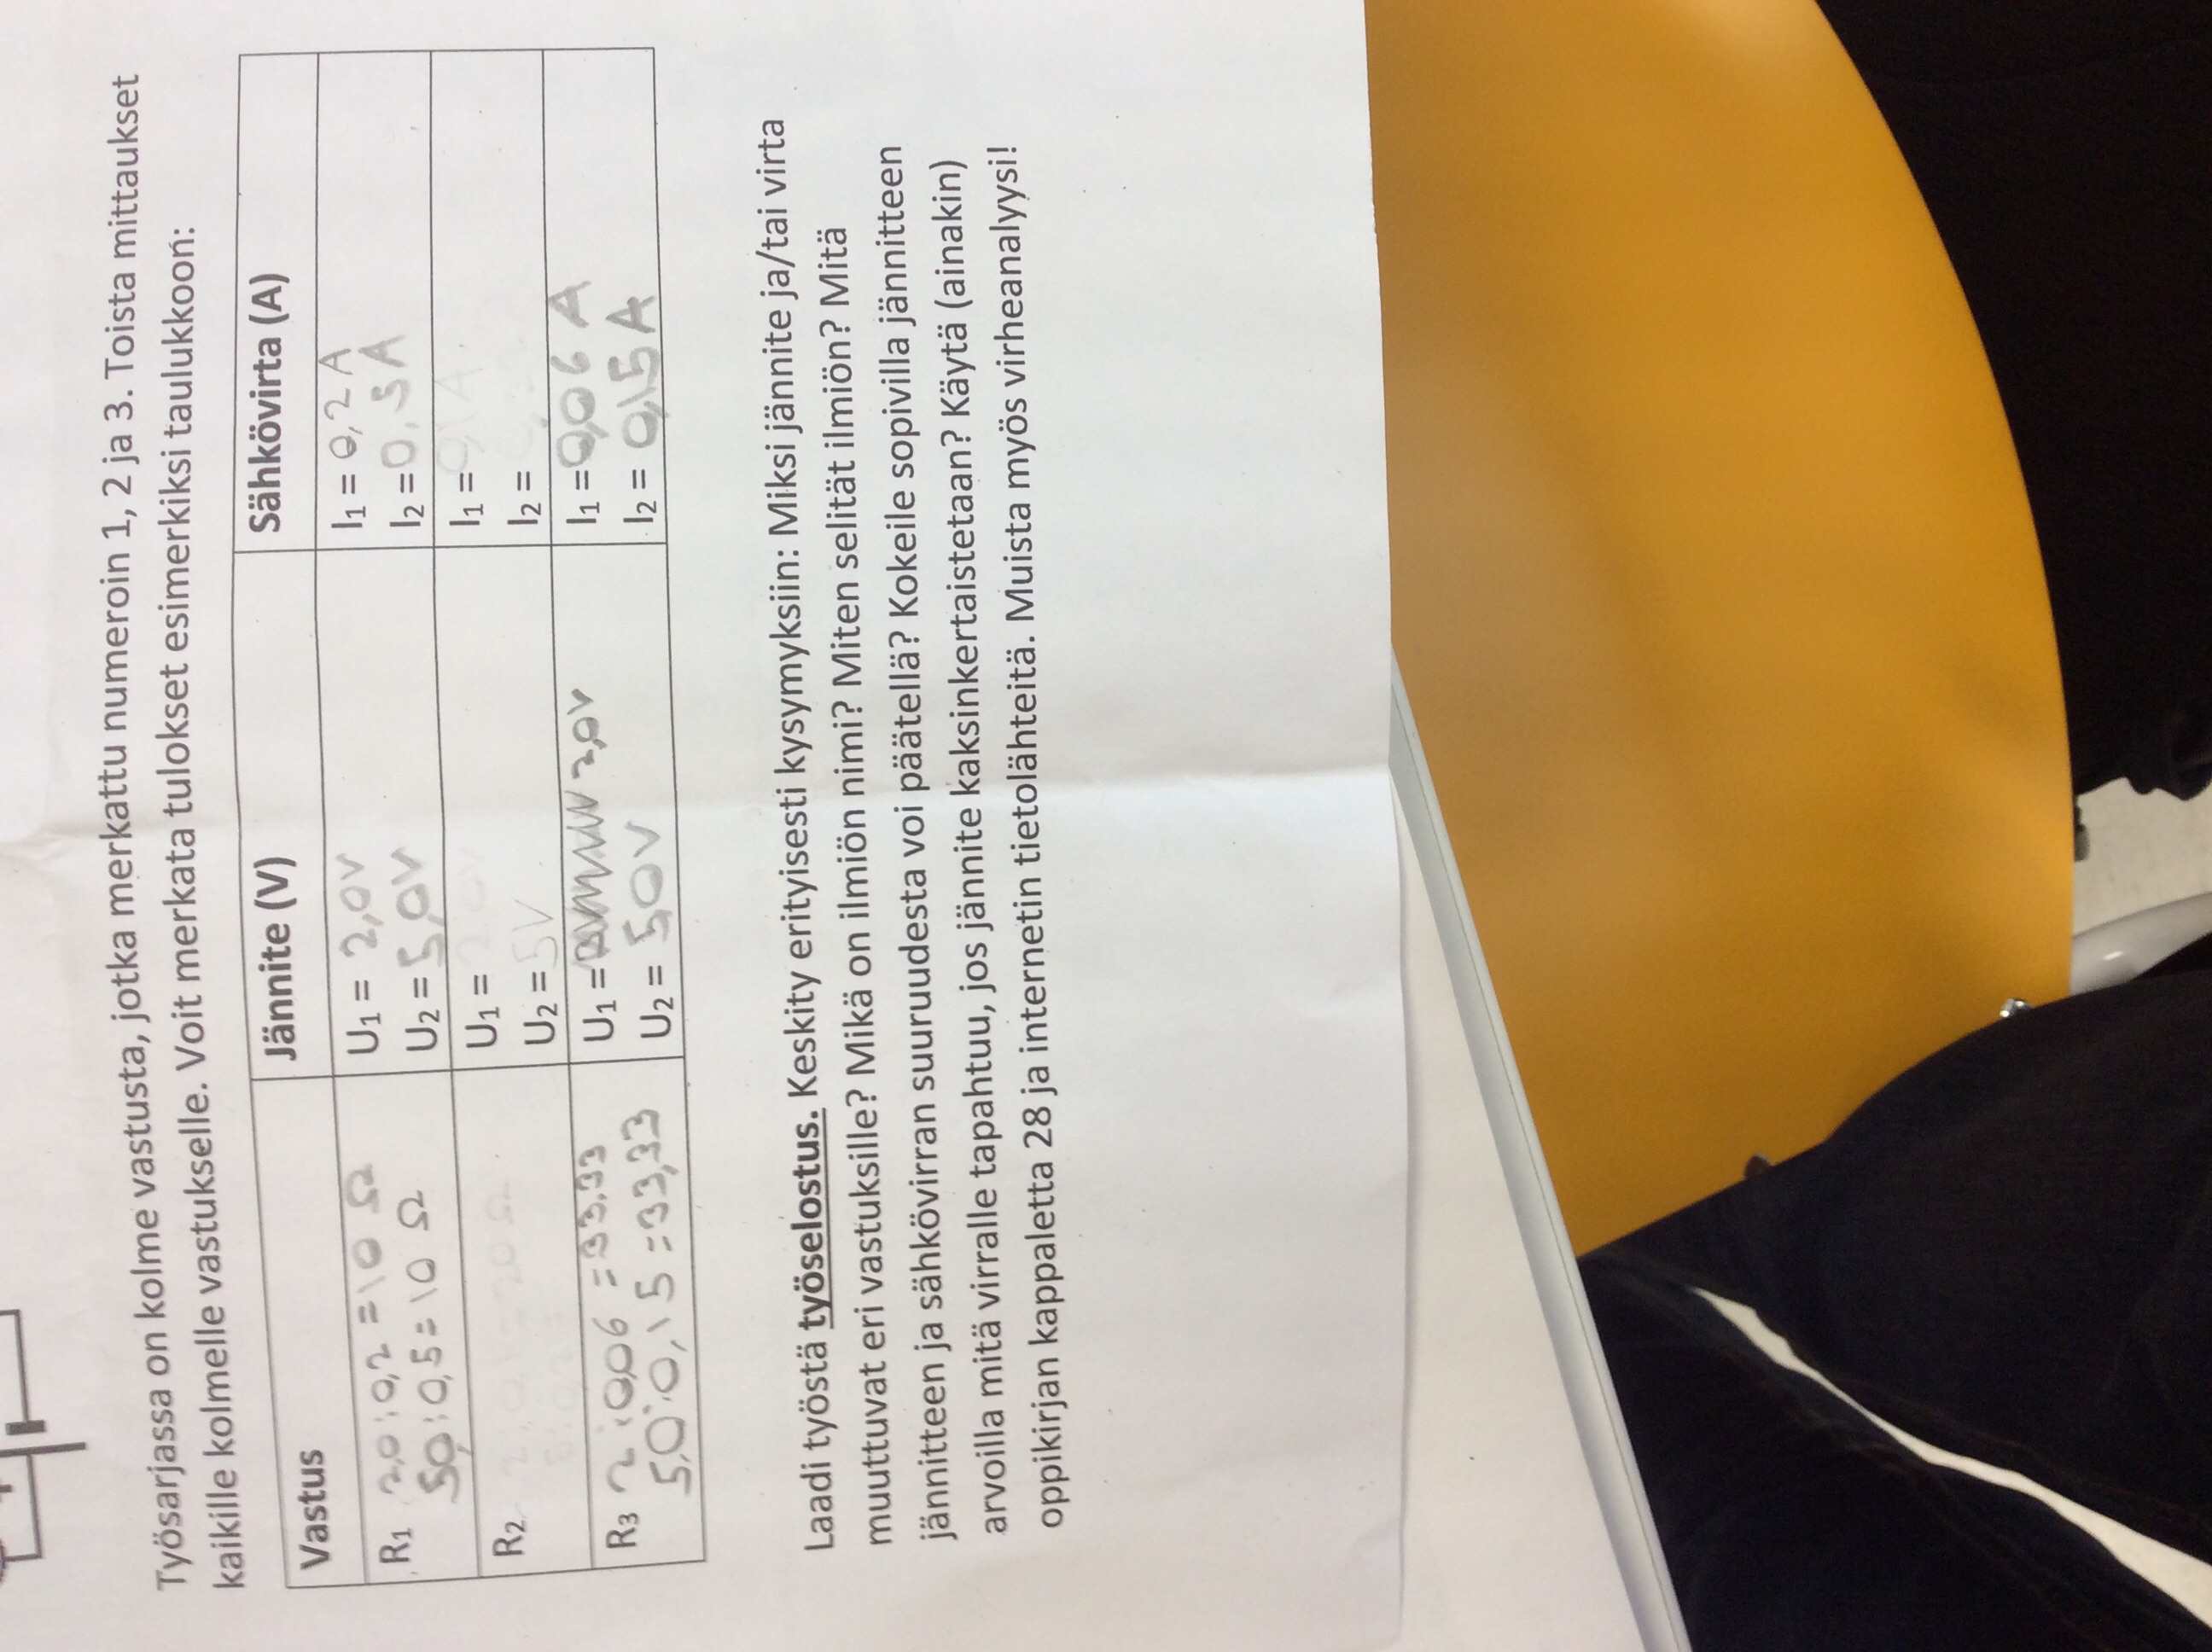 Työsarjassa on kolme vastusta, jotka merkattu numeroin 1, 2 ja 3. Toista mittaukset
kaikille kolmelle vastukselle. Voit merkata tulokset esimerkiksi taulukkoon:
Vastus Jännite (V) Sähkövirta (A)
R1 2,0 : 0,2 = 10 Ω U1 = 2,0V I1 = 0,2 A
5,0 : 0,5 = 10 Ω U2 = 5,0V I2 = 0,5 A
R2 20 Ω U1 = 2,0V I1 = 0,1 A
U2 = 5V I2 =
R3 2 : 0,06 = 33,33 U1 = 2,0V I1 = 0,06 A
5,0 : 0,15 = 33,33 U2 = 5,0V I2 = 0,15 A
Laadi työstä työselostus. Keskity erityisesti kysymyksiin: Miksi jännite ja/tai virta
muuttuvat eri vastuksille? Mikä on ilmiön nimi? Miten selität ilmiön? Mitä
jännitteen ja sähkövirran suuruudesta voi päätellä? Kokeile sopivilla jännitteen
arvoilla mitä virralle tapahtuu, jos jännite kaksinkertaistetaan? Käytä (ainakin)
oppikirjan kappaletta 28 ja internetin tietolähteitä. Muista myös virheanalyysi!